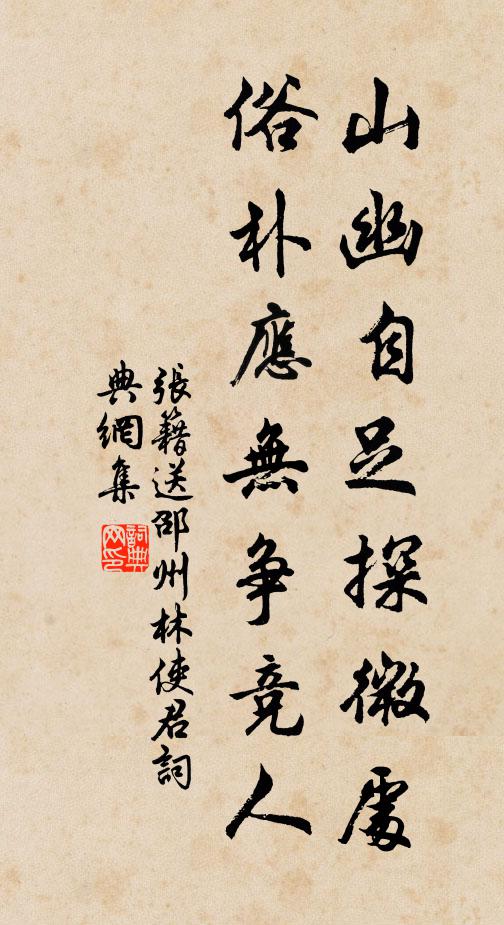 山幽自足探微處
俗朴應無争竞人
張籍送邵州林使君詞
典網集
詞典网印